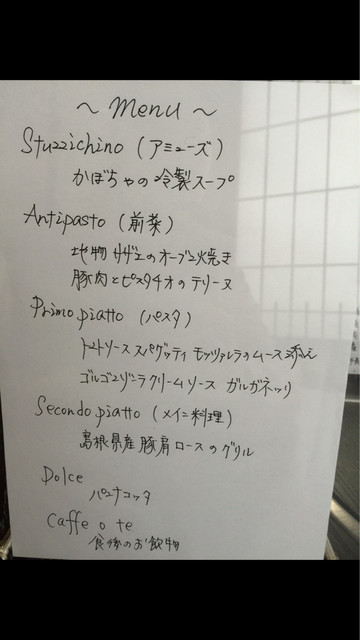 ～ Menu ～
Stuzzichino (アミューズ)
かぼちゃの冷製スープ
Antipasto (前菜)
地物 サザエのオーブン焼き
豚肉とピスタチオのテリーヌ
Primo piatto (パスタ)
トマトソース スパゲッティ モッツァレラのムース添え
ゴルゴンゾーラクリームソース ガルガネッリ
Secondo piatto (メイン料理)
島根県産豚肩ロースのグリル
Dolce
パンナコッタ
Caffe o te
食後のお飲物